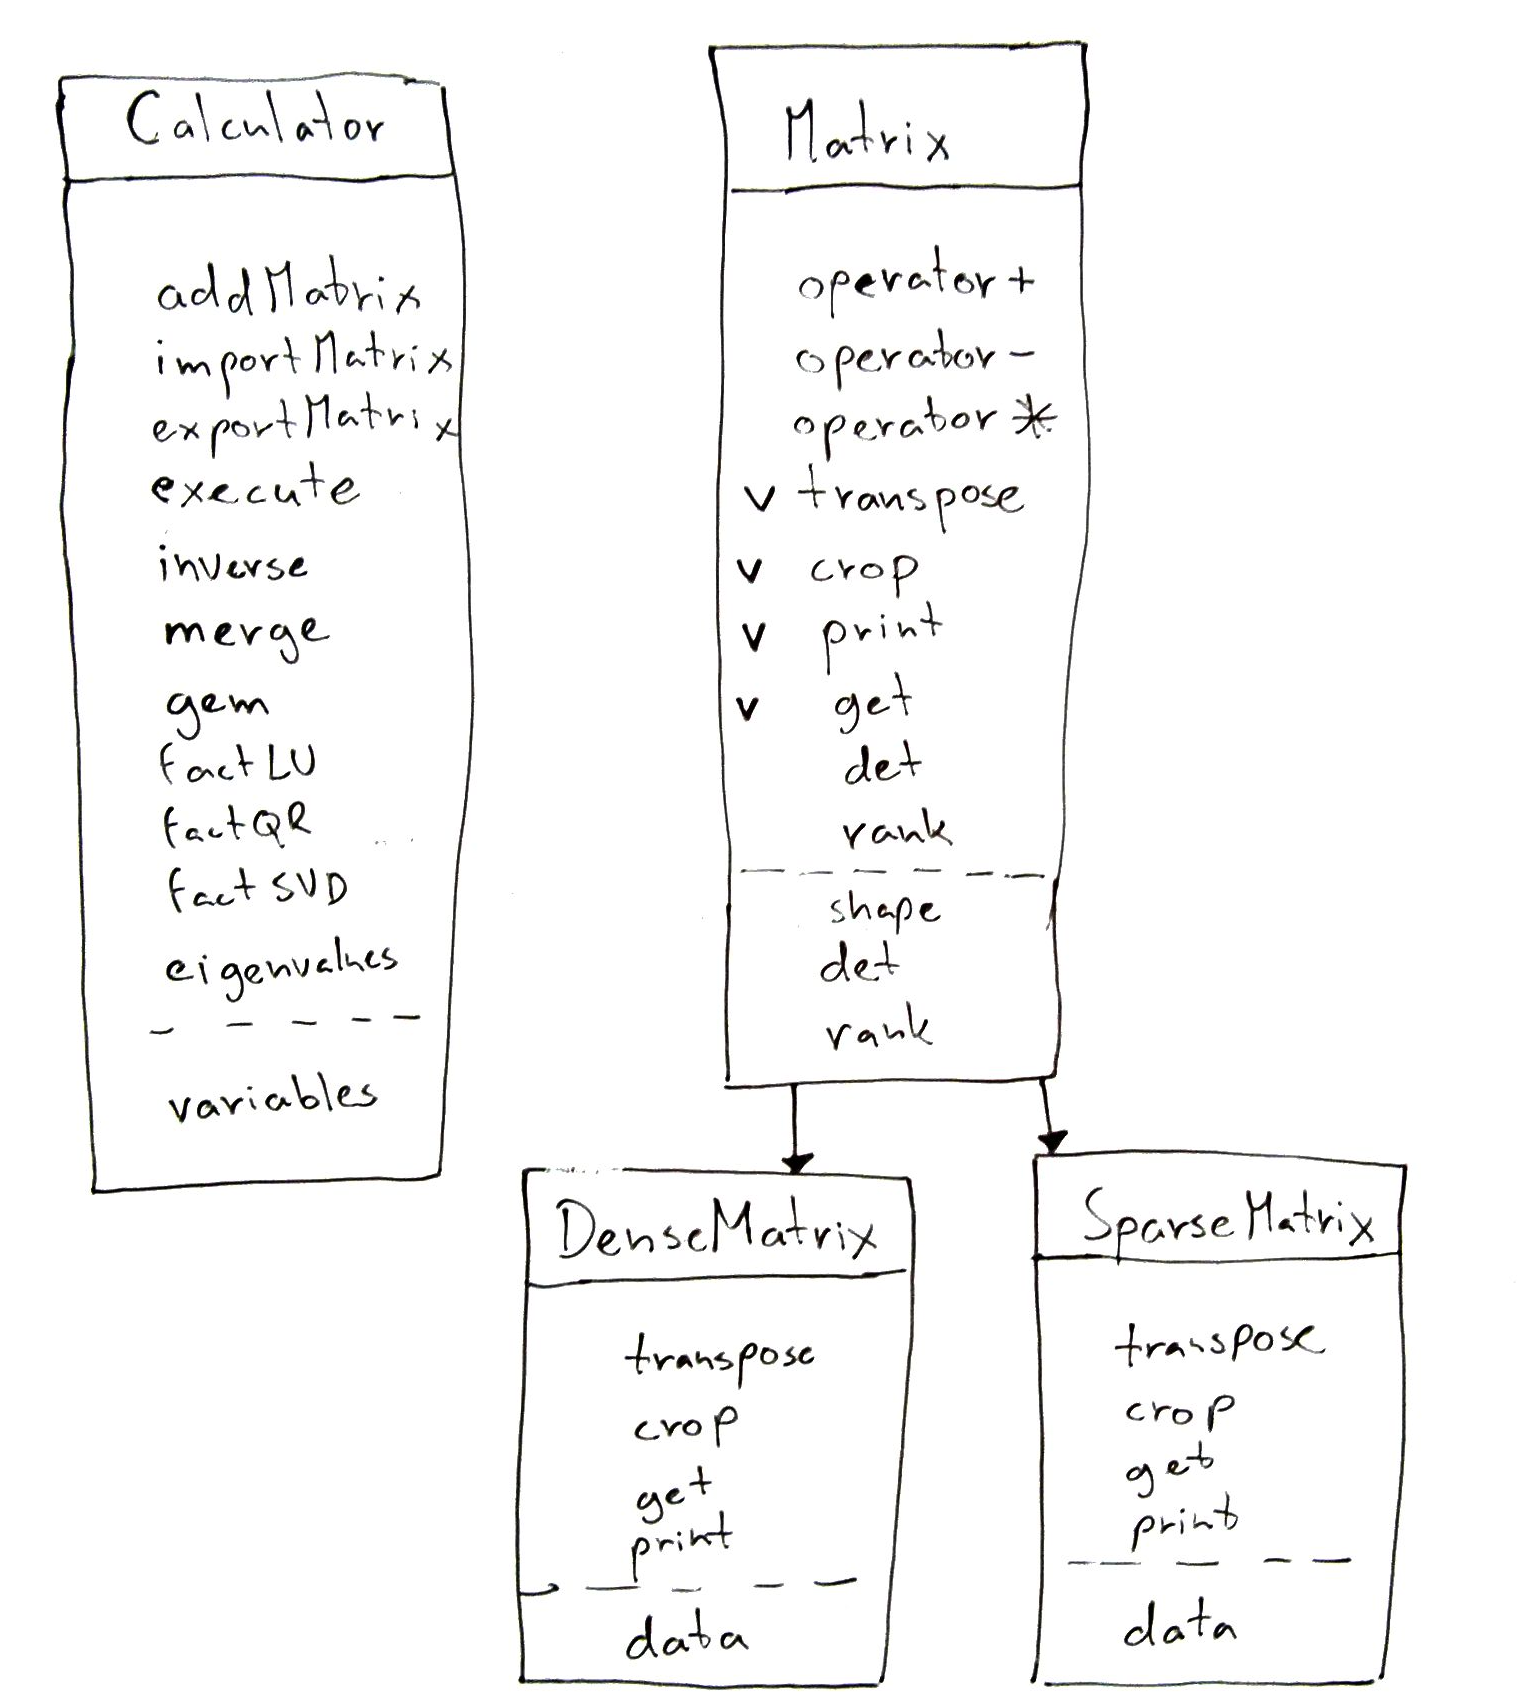 Calculator
addMatrix
importMatrix
exportMatrix
execute
inverse
merge
gem
factLU
factQR
factSVD
eigenvalues
variables
Matrix
operator+
operator-
operator*
v transpose
v crop
v print
v get
det
rank
shape
det
rank
DenseMatrix
transpose
crop
get
print
data
SparseMatrix
transpose
crop
get
print
data